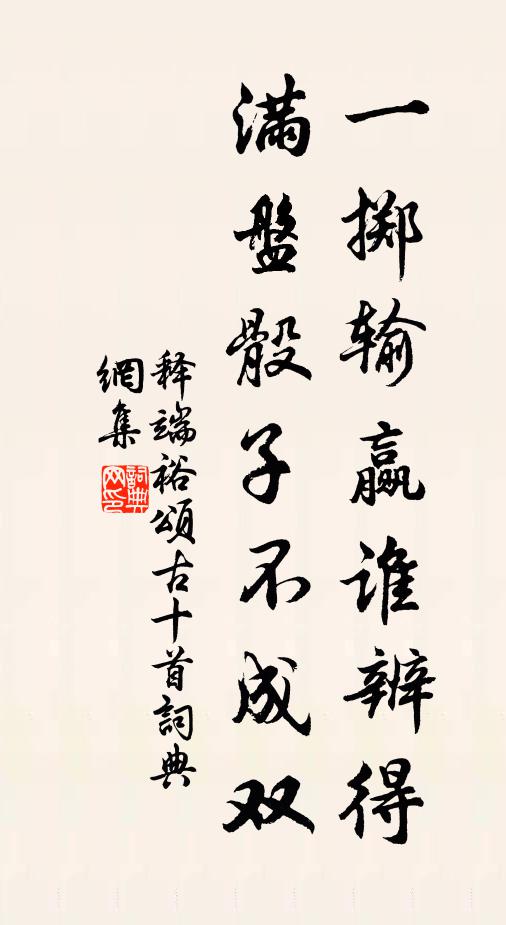 一掷输赢谁辨得
满盤骰子不成双
释端裕頌古十首詞典
網集
詞典网印